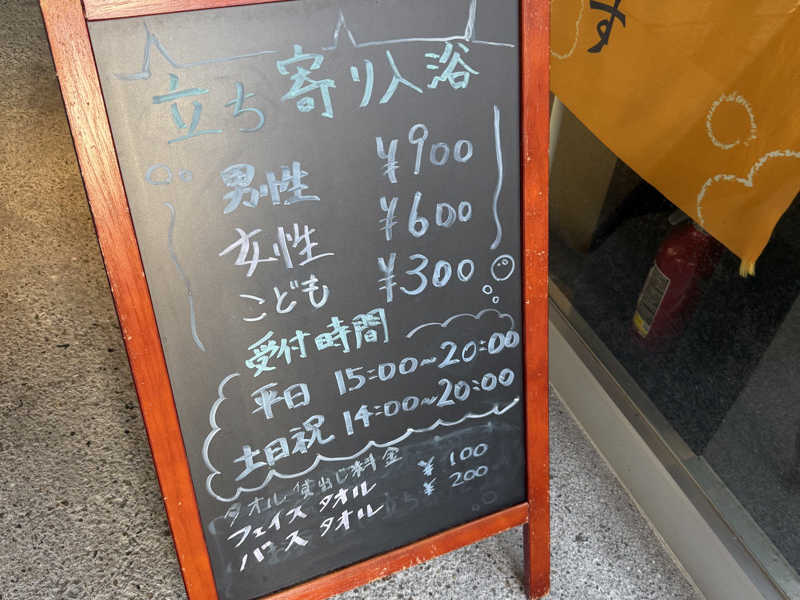 立ち寄り入浴
男性 ¥900
女性 ¥600
こども ¥300
受付時間
平日 15:00~20:00
土日祝 14:00~20:00
タオル貸出し料金
フェイスタオル ¥100
バスタオル ¥200
す